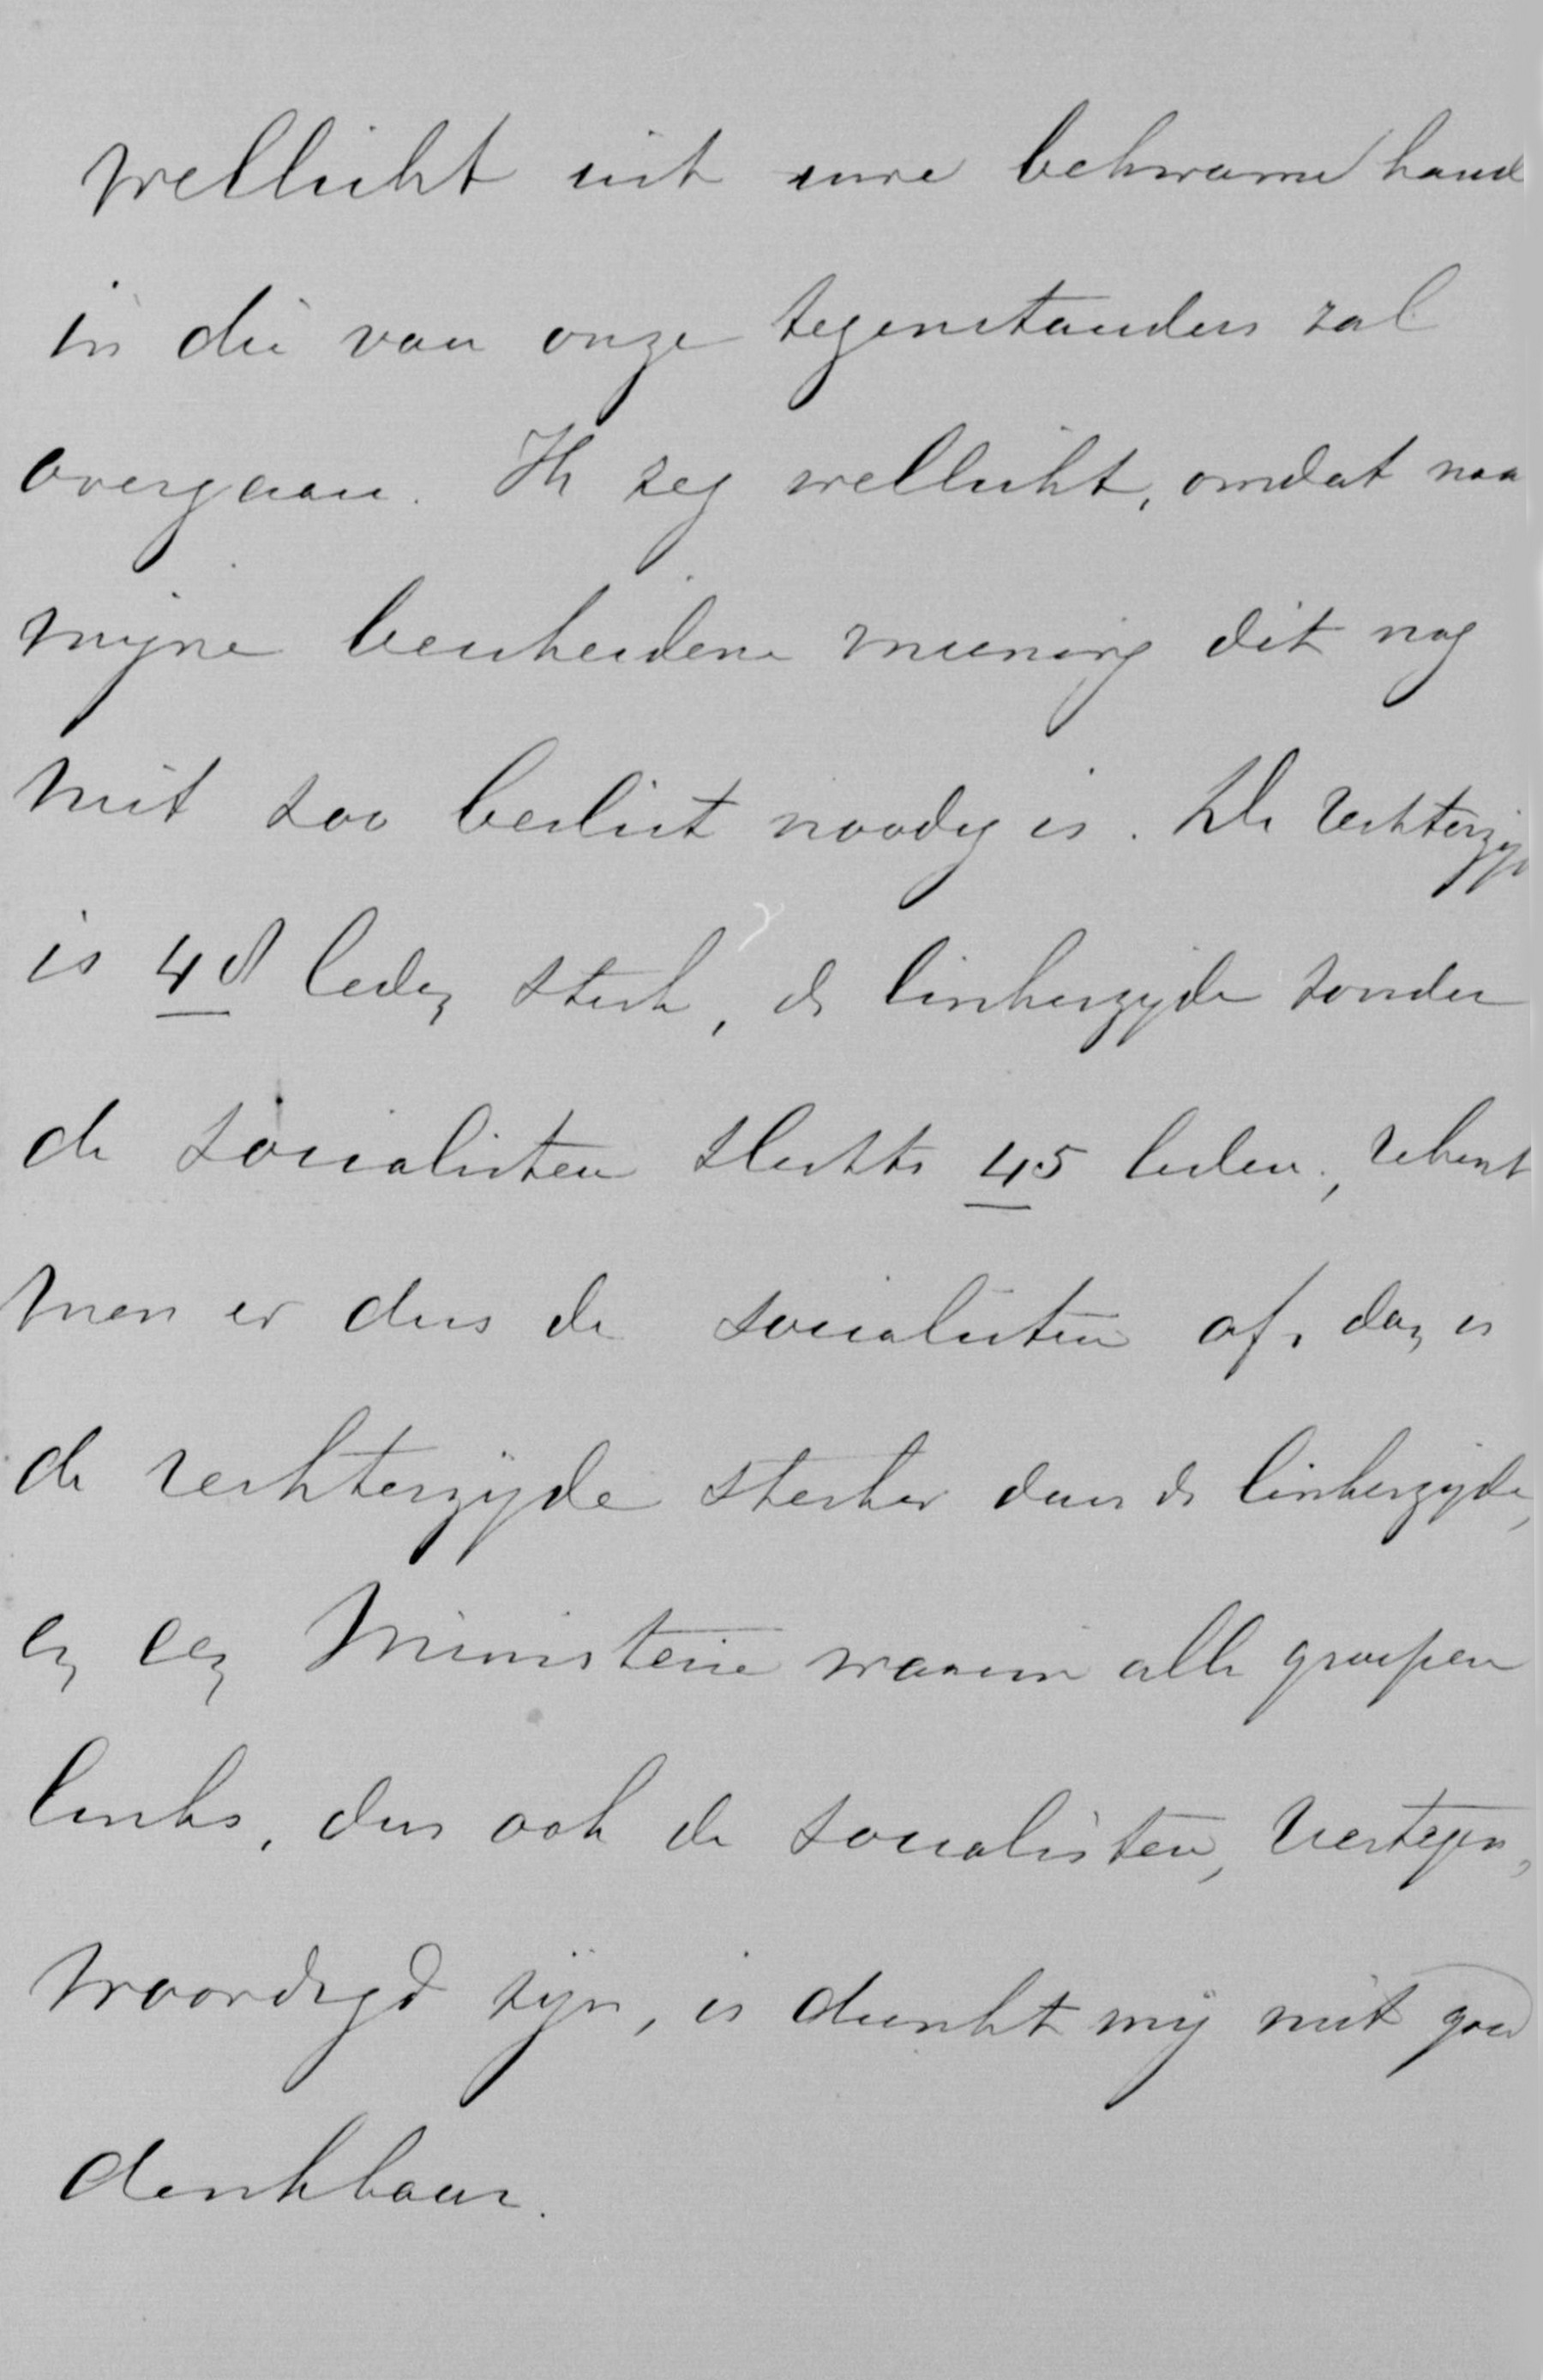 wellicht uit uwe bekwame hand
in die van onze tegenstanders zal
overgaan. Ik zeg wellicht, omdat naa
mijne bescheidene meening dit nog
niet zoo beslist noodig is. De Rechterzijd
is 48 leden sterk, de linkerzijde zonder
de socialisten slechts 45 leden; rekent
men er dus de socialisten af, dan is
de rechterzijde sterker dan de linkerzijde,
en een Ministerie waarin alle groepen
links, dus ook de socialisten, vertegen„
woordigd zijn, is dunkt mij niet goed
denkbaar.